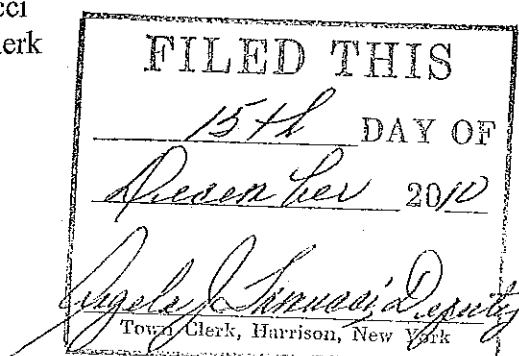 cci
erk
FILED THIS
15th DAY OF
December 2010
Angela J. Deputy
Town Clerk, Harrison, New York